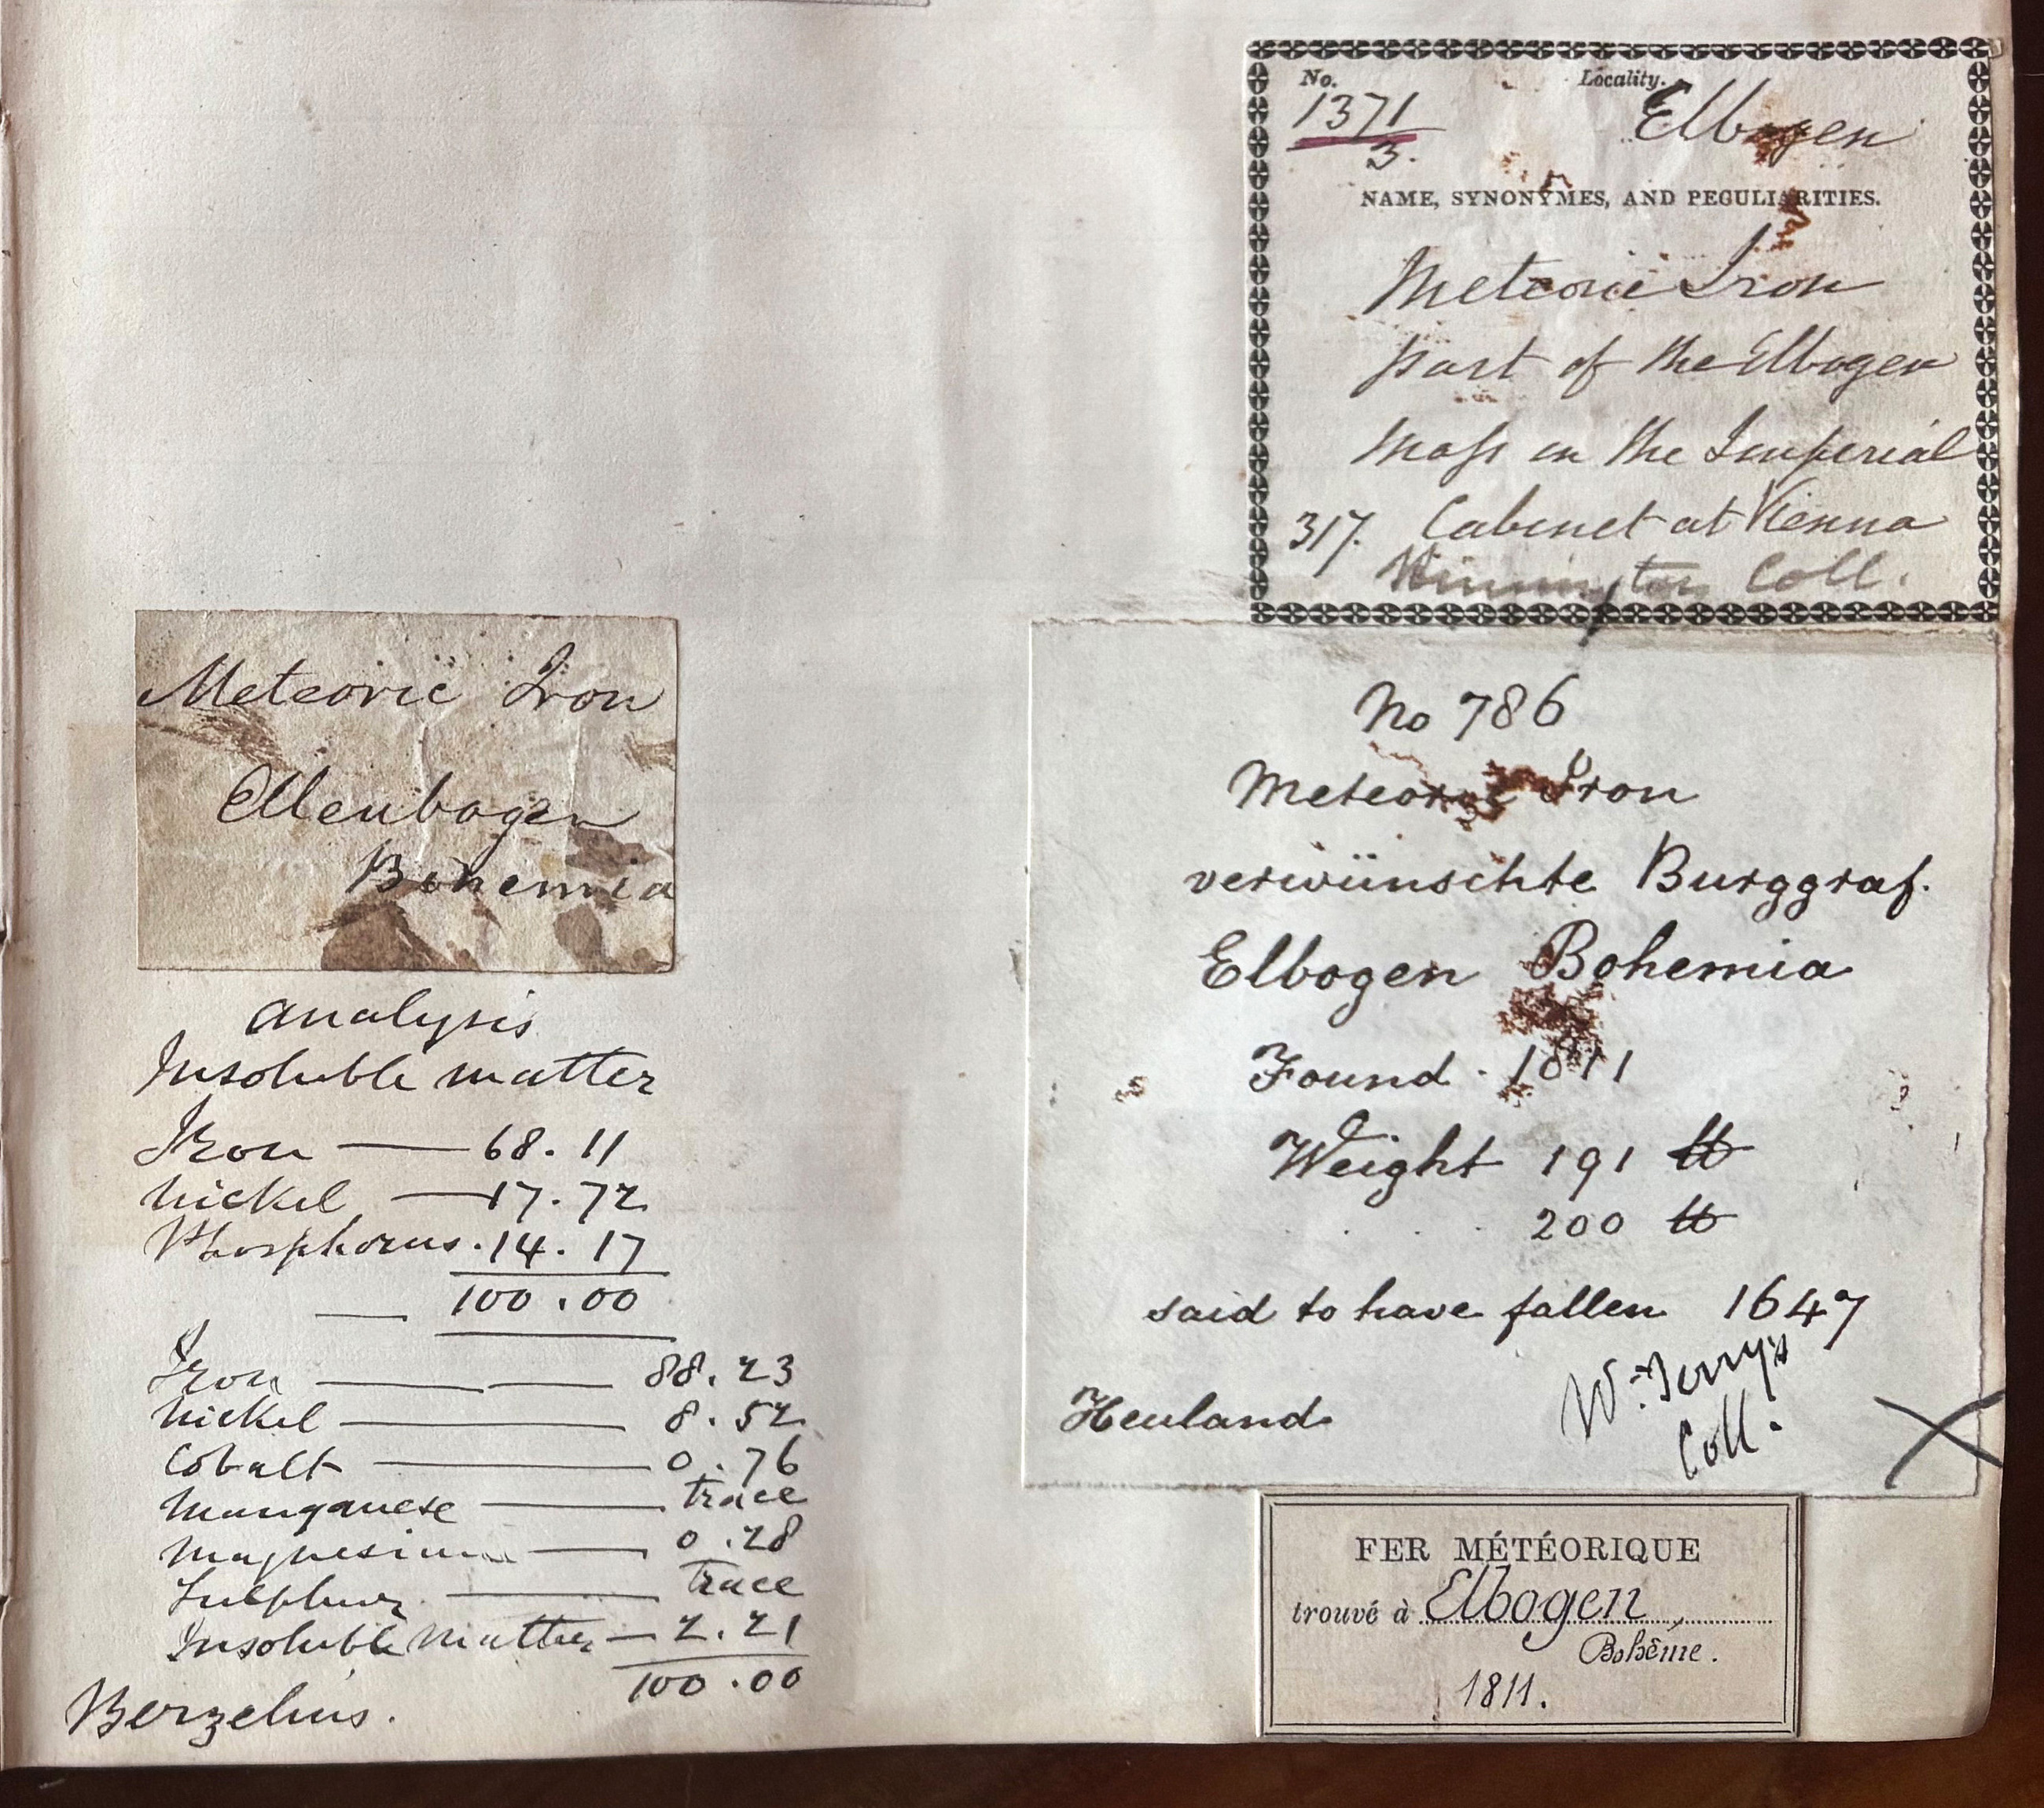 Meteoric Iron
Ellenbogen
Bohemia
Analysis
Insoluble matter
Iron — 68.11
Nickel — 17.72
Phosphorus . 14.17
— 100.00
Iron — — 88.23
Nickel — 8.52
Cobalt — 0.76
Manganese — trace
Magnesium — 0.28
Sulphur — trace
Insoluble Matter — 2.21
100.00
Berzelius.
No. Locality.
1371 Elbogen
3.
NAME, SYNONYMES, AND PECULIARITIES.
Meteoric Iron
part of the Elbogen
Mass in the Imperial
317. Cabinet at Vienna
Coll.
No 786
Meteoric Iron
verwünschte Burggraf.
Elbogen Bohemia
Found . 1811
Weight 191 lb
200 lb
said to have fallen 1647
W. Terry's
Coll.
Heuland
FER MÉTÉORIQUE
trouvé à Elbogen,
Bohême.
1811.